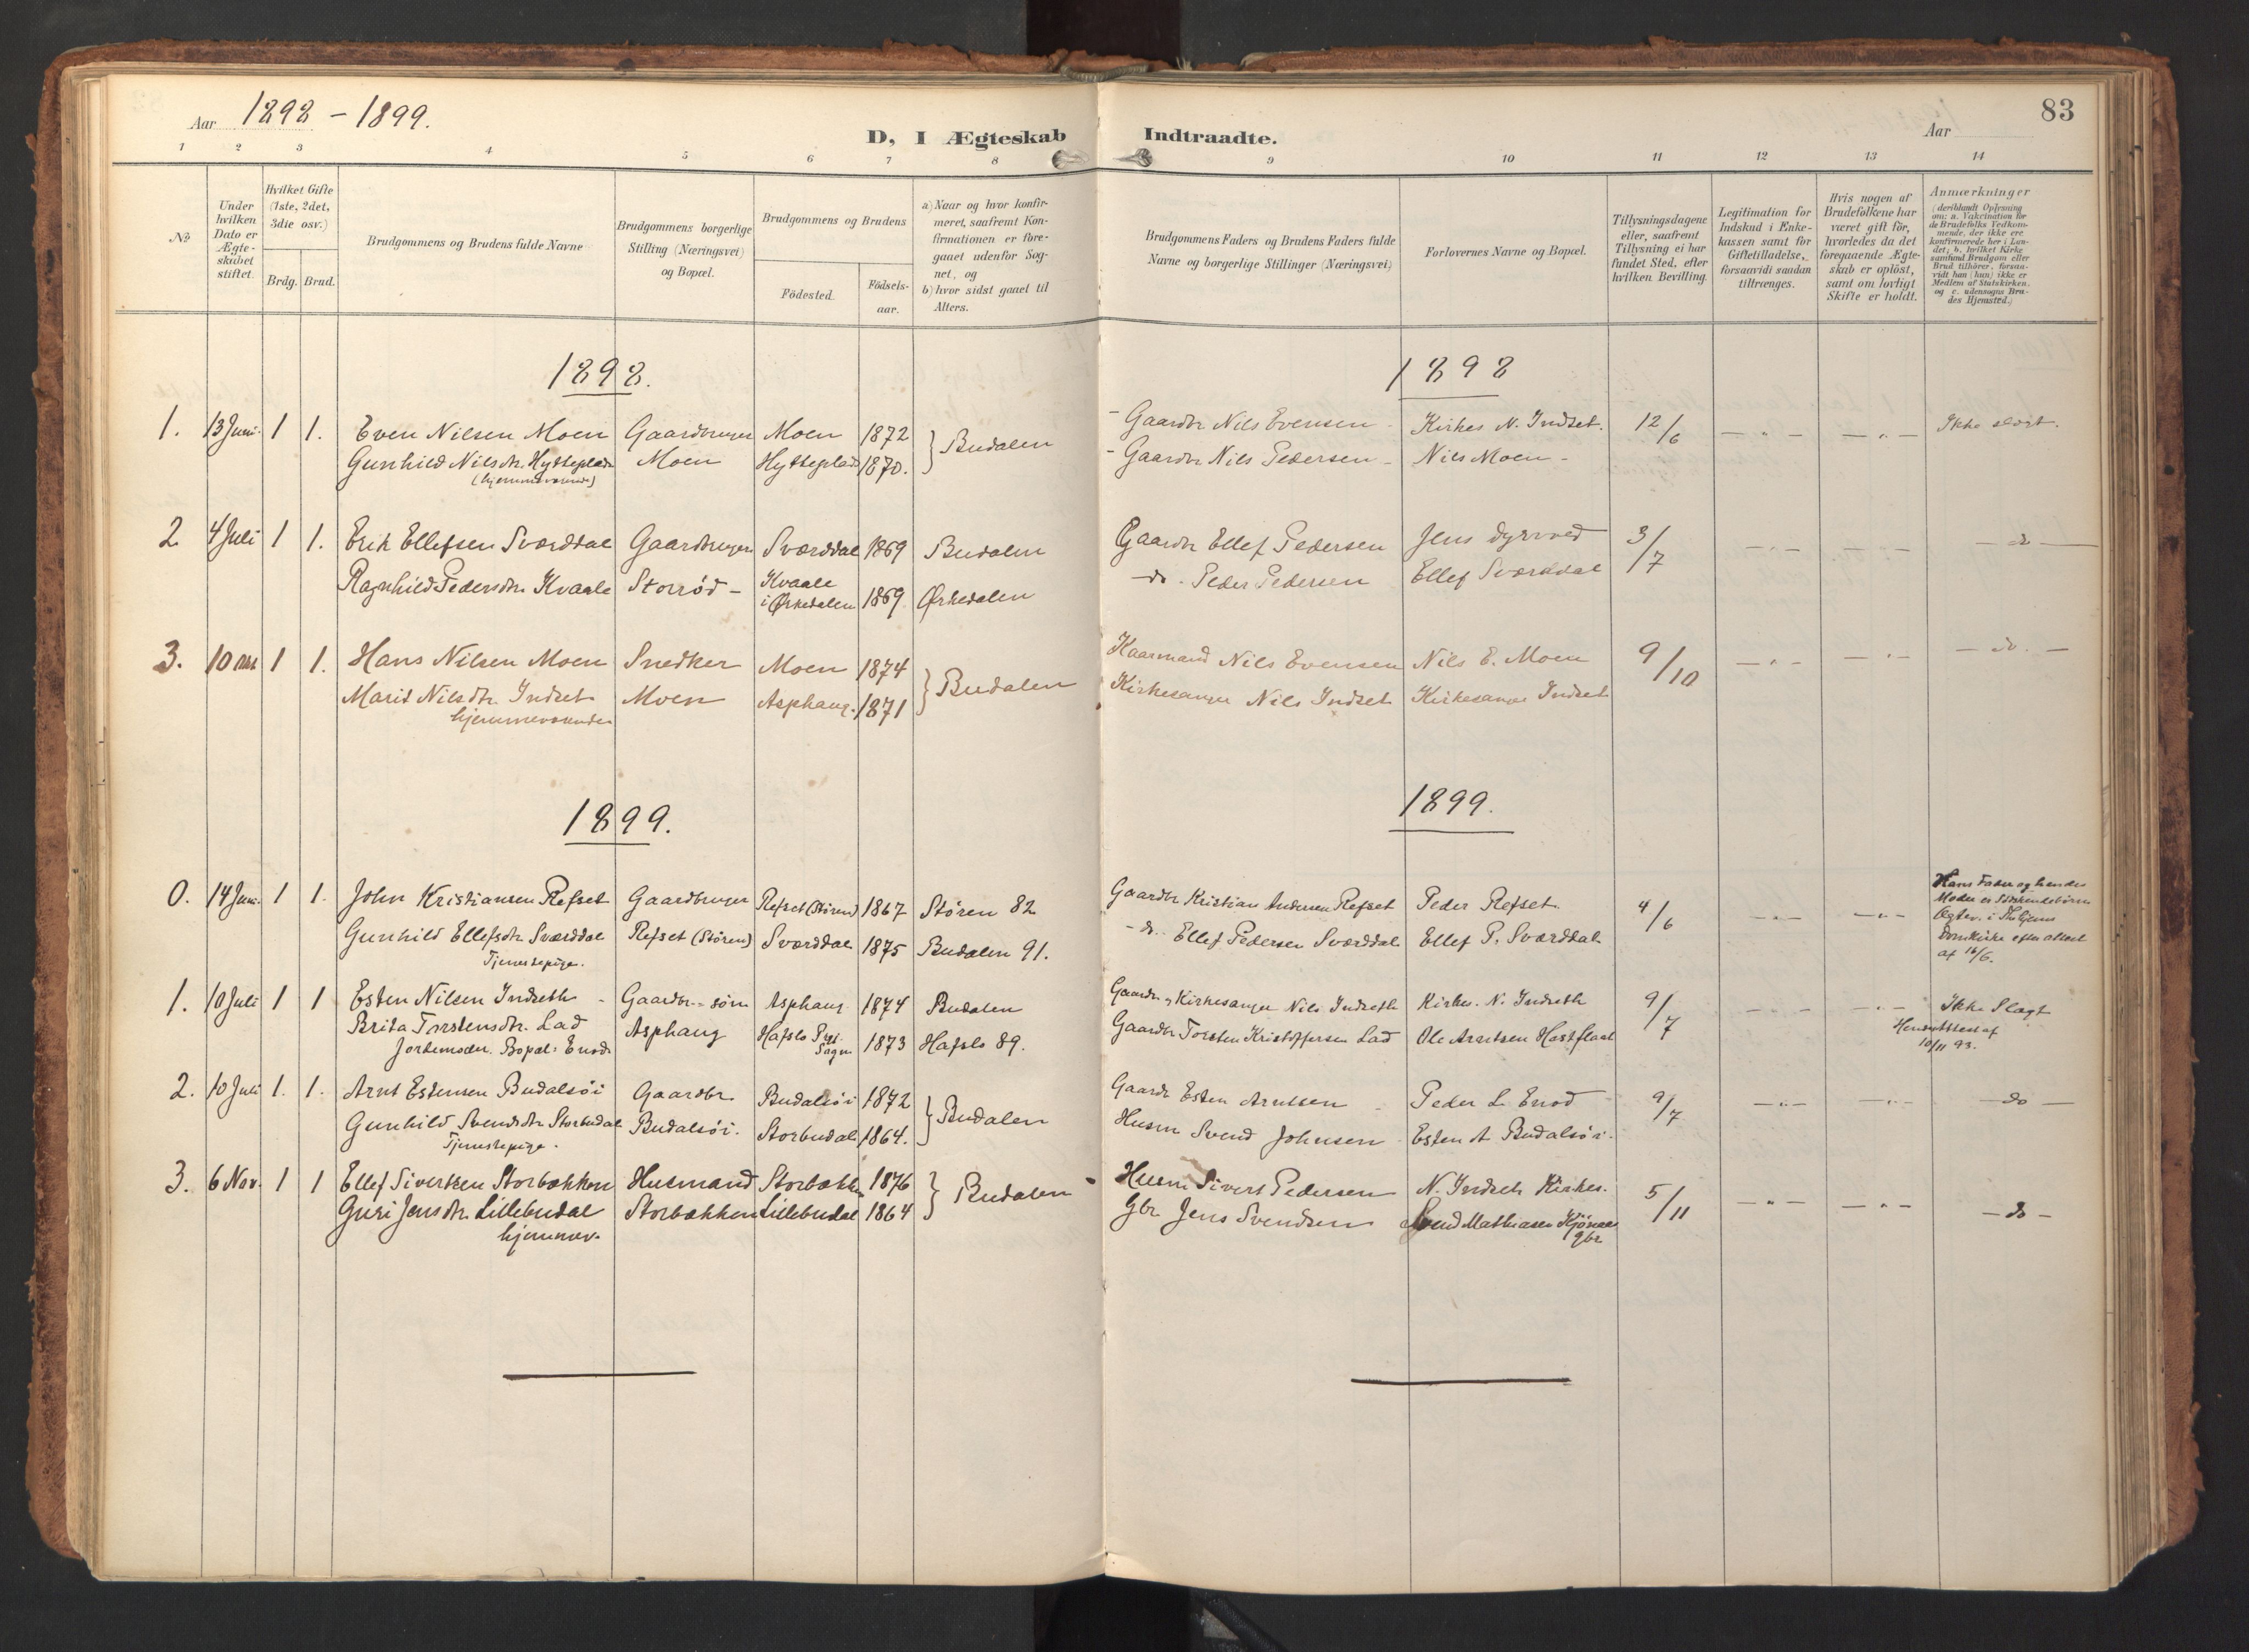 Aar 1898 - 1899.
D, I Ægteskab Indtraadte.
Aar
83
1 2 3 4 5 6 7 8 9 10 11 12 13 14
№
Under hvilken Dato er Ægteskabet stiftet.
Hvilket Gifte (1ste, 2det, 3die osv.)
Brdg. Brud.
Brudgommens og Brudens fulde Navne
Brudgommens borgerlige Stilling (Næringsvei) og Bopæl.
Brudgommens og Brudens
Födested.
Födsels-aar.
a) Naar og hvor konfirmeret, saafremt Konfirmationen er foregaaet udenfor Sognet, og
b) hvor sidst gaaet til Alters.
Brudgommens Faders og Brudens Faders fulde Navne og borgerlige Stillinger (Næringsvei)
Forlovernes Navne og Bopæl.
Tillysningsdagene eller, saafremt Tillysning ei har fundet Sted, efter hvilken Bevilling.
Legitimation for Indskud i Enkekassen samt for Giftetilladelse, forsaavidt saadan tiltrænges.
Hvis nogen af Brudefolkene har været gift för, hvorledes da det foregaaende Ægteskab er oplöst, samt om lovligt Skifte er holdt.
Anmærkninger
(deriblandt Oplysning om: a. Vakcination for de Brudefolks Vedkommende, der ikke ere konfirmerede her i Landet; b. hvilket Kirkesamfund Brudgom eller Brud tilhörer, forsaavidt han (hun) ikke er Medlem af Statskirken, og c. udensogns Brudes Hjemsted.)
1898. 1898
1. 13 Juni. 1 1. Even Nilsen Moen Gaardbruger Moen 1872 } Budalen - Gaardbr Nils Evensen - Kirkes N. Indset. 12/6 — " — — " — Ikke slægt.
Gunhild Nilsdtr. Hytteplads Moen Hytteplads 1870. - Gaardbr Nils Pedersen - Nils Moen -
(hjemmeværende)
2 4 Juli 1 1. Erik Ellefsen Sværddal Gaardbruger Sværddal 1869 Budalen Gaardbr Ellef Pedersen Jens Dyrvod 3/7 — " — — " — — do —
Ragnhild Pedersdtr. Kvaale Storrød - Kvaale i Ørkedalen 1869. Ørkedalen — do. Peder Pedersen Ellef Sværddal
3. 10 1 1. Hans Nilsen Moen Snedker Moen 1874 } Budalen Kaarmand Nils Evensen Nils E. Moen 9/10 — " — — " — — do. —
Marit Nilsdtr. Indset Moen Asphaug. 1871 Kirkesanger Nils Indset Kirkesanger Indset
hjemmeværende
1899. 1899.
0. 14 Juni. 1 1. John Kristiansen Refset Gaardbruger Refset (Støren) 1867 Støren 82 Gaardbr Kristian Andersen Refset Peder Refset. 4/6 — " — — " — Hans Fader og hendes
Moder er Södskendebörn
Gunhild Ellefsdtr Sværddal Refset (Støren) Sværddal 1875 Budalen 91. - do. Ellef Pedersen Sværddal Ellef P. Sværddal
Ægtev. i Thhjems
Domkirke efter attest
af 16/6.
Tjenestepige.
1. 10 Juli 1 1 Esten Nilsen Indseth - Gaardbr.-søn Asphaug 1874 Budalen Gaardbr. og Kirkesanger Nils Indseth Kirkes. N. Indseth 9/7 — " — — " — Ikke Slægt
Brita Torstensdtr. Lad Asphaug Hafslo Prgj. Sogn 1873 Hafslo 89. Gaardbr Torsten Kristoffersen Lad Ole Arntsen
10/11 93.
Jordemoder. Bopæl: Enod.
2. 10 Juli 1. 1. Arnt Estensen Budalsöi Gaardbr. Budalsöi 1872 } Budalen Gaardbr Esten Arntsen - Peder L. Enod 9/7 — " — — " — — do —
Gunhild Svendsdtr Storbudal Budalsöi. Storbudal 1864. Husm Svend Johnsen - Esten A Budalsöi.
Tjenestepige.
3. 6 Nov. 1 1 Ellef Sivertsen Storbækken Husmand Storbækken 1876 } Budalen Husm Sivert Pedersen N. Indseth Kirkes. 5/11 — " — — " — — do —
Guri Jensdtr. Lillebudal Storbækken Lillebudal 1864 Gbr Jens Svendsen Svend Mathiasen Kjönaas
gbr
hjemmev.